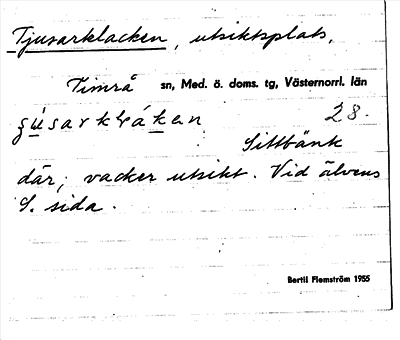 Tjuvarklacken, utsiktsplats,
Timrå sn, Med. ö. doms. tg, Västernorrl. län
28.
Sittbänk
där; vacker utsikt. Vid älvens
S. sida.
Bertil Flemström 1955